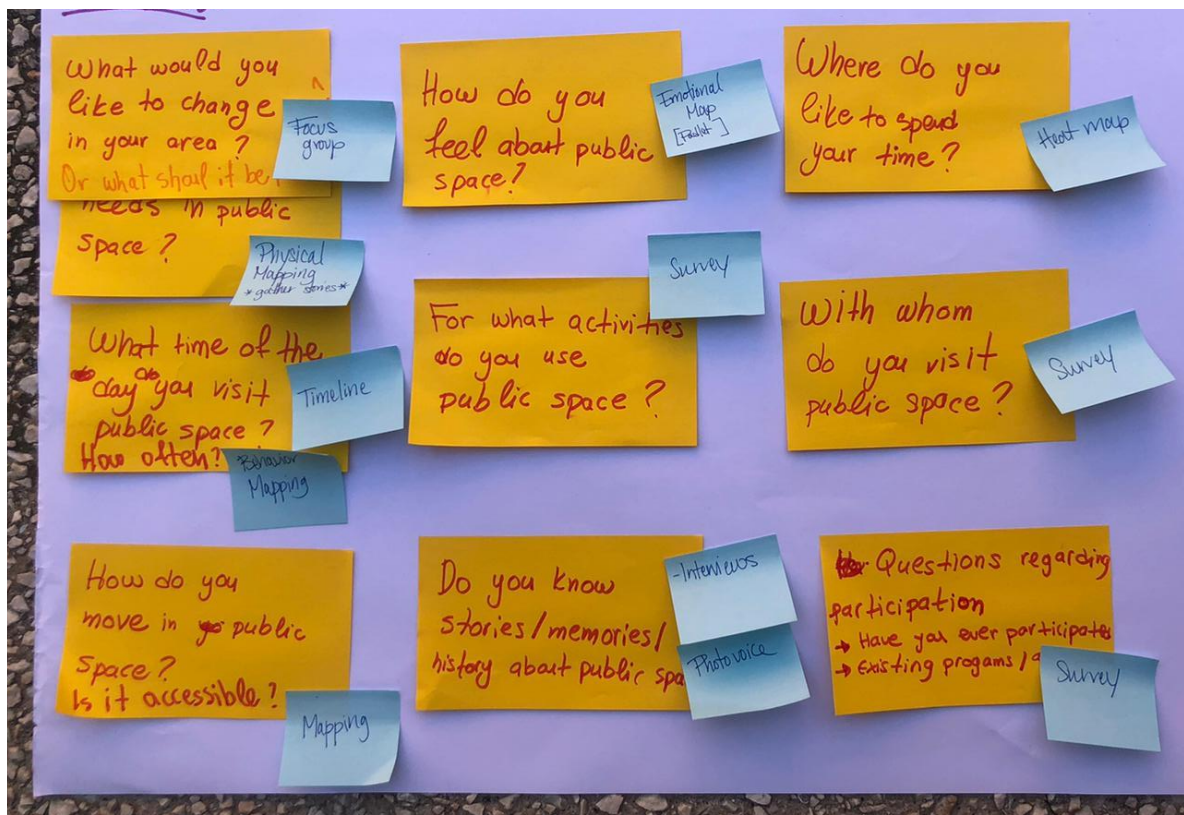 What would you
like to change
in your area ?
Or what shoul it be?
Focus
group
needs in public
space ?
Physical
Mapping
*gather stories*
How do you
feel about public
space?
Emotional
Map
Where do you
like to spend
your time ?
Heat map
What time of the
day do you visit
public space ?
How often?
Timeline
Behavior
Mapping
For what activities
do you use
public space ?
Survey
With whom
do you visit
public space ?
Survey
How do you
move in public
space ?
Is it accessible ?
Mapping
Do you know
stories/memories/
history about public spa
-Interviews
Photovoice
Questions regarding
participation
→ Have you ever participate
→ Existing progams /
Survey